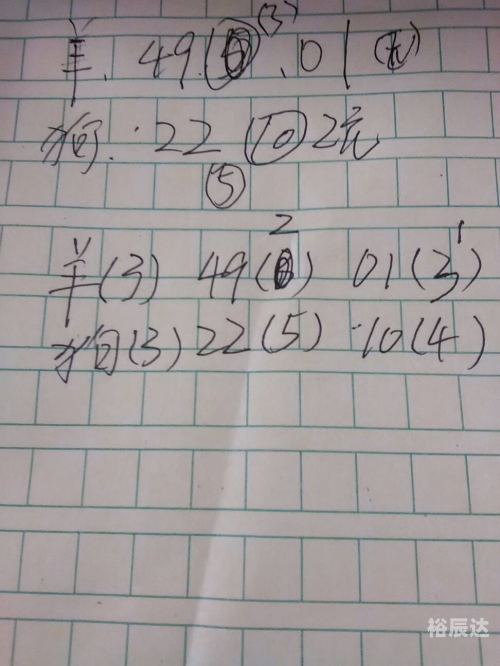 (3)
羊. 49. 01
狗. 22 (10) 2元
(5)
2 1
羊(3) 49 01(3)
狗(3) 22(5) 10(4)
裕辰达